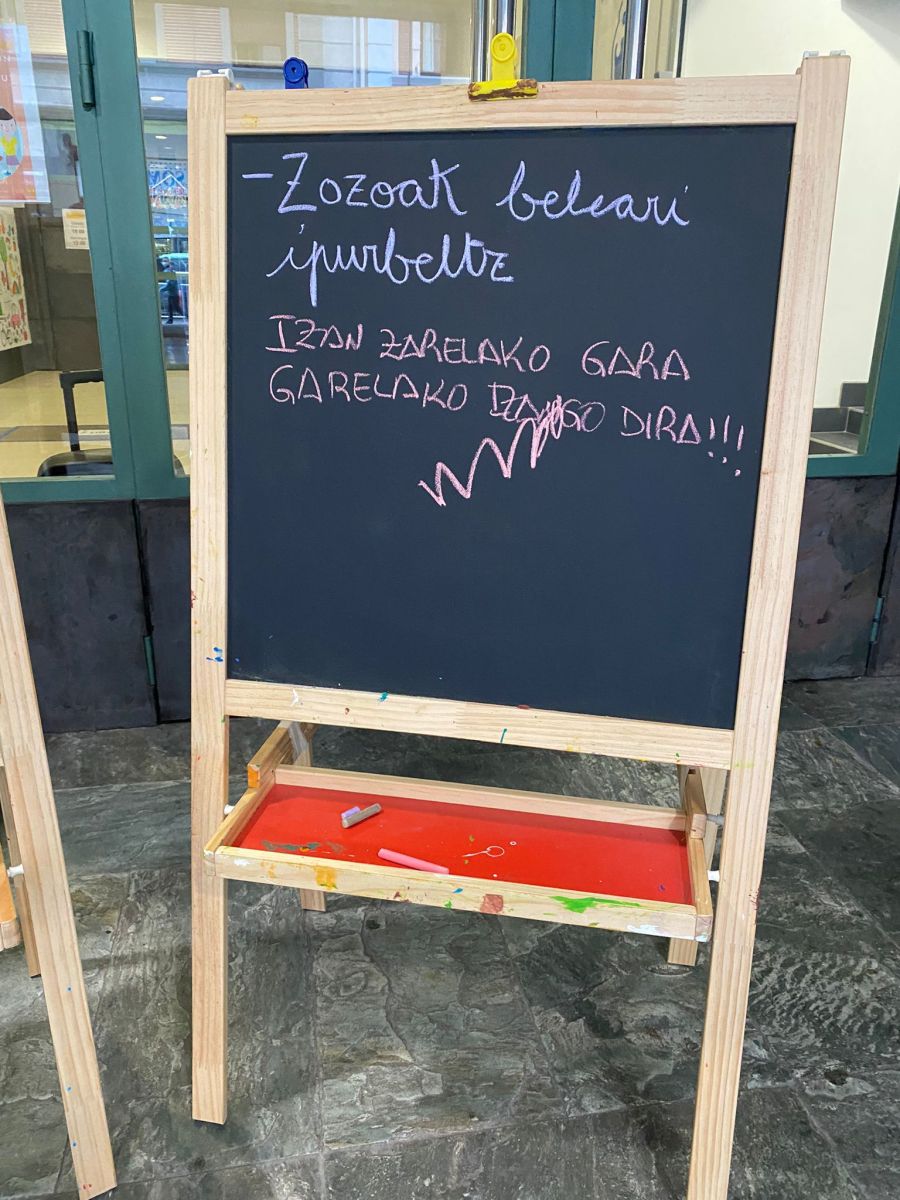 - Zozoak beleari
ipurbeltz
IZAN ZARELAKO GARA
GARELAKO IZANGO DIRA!!!